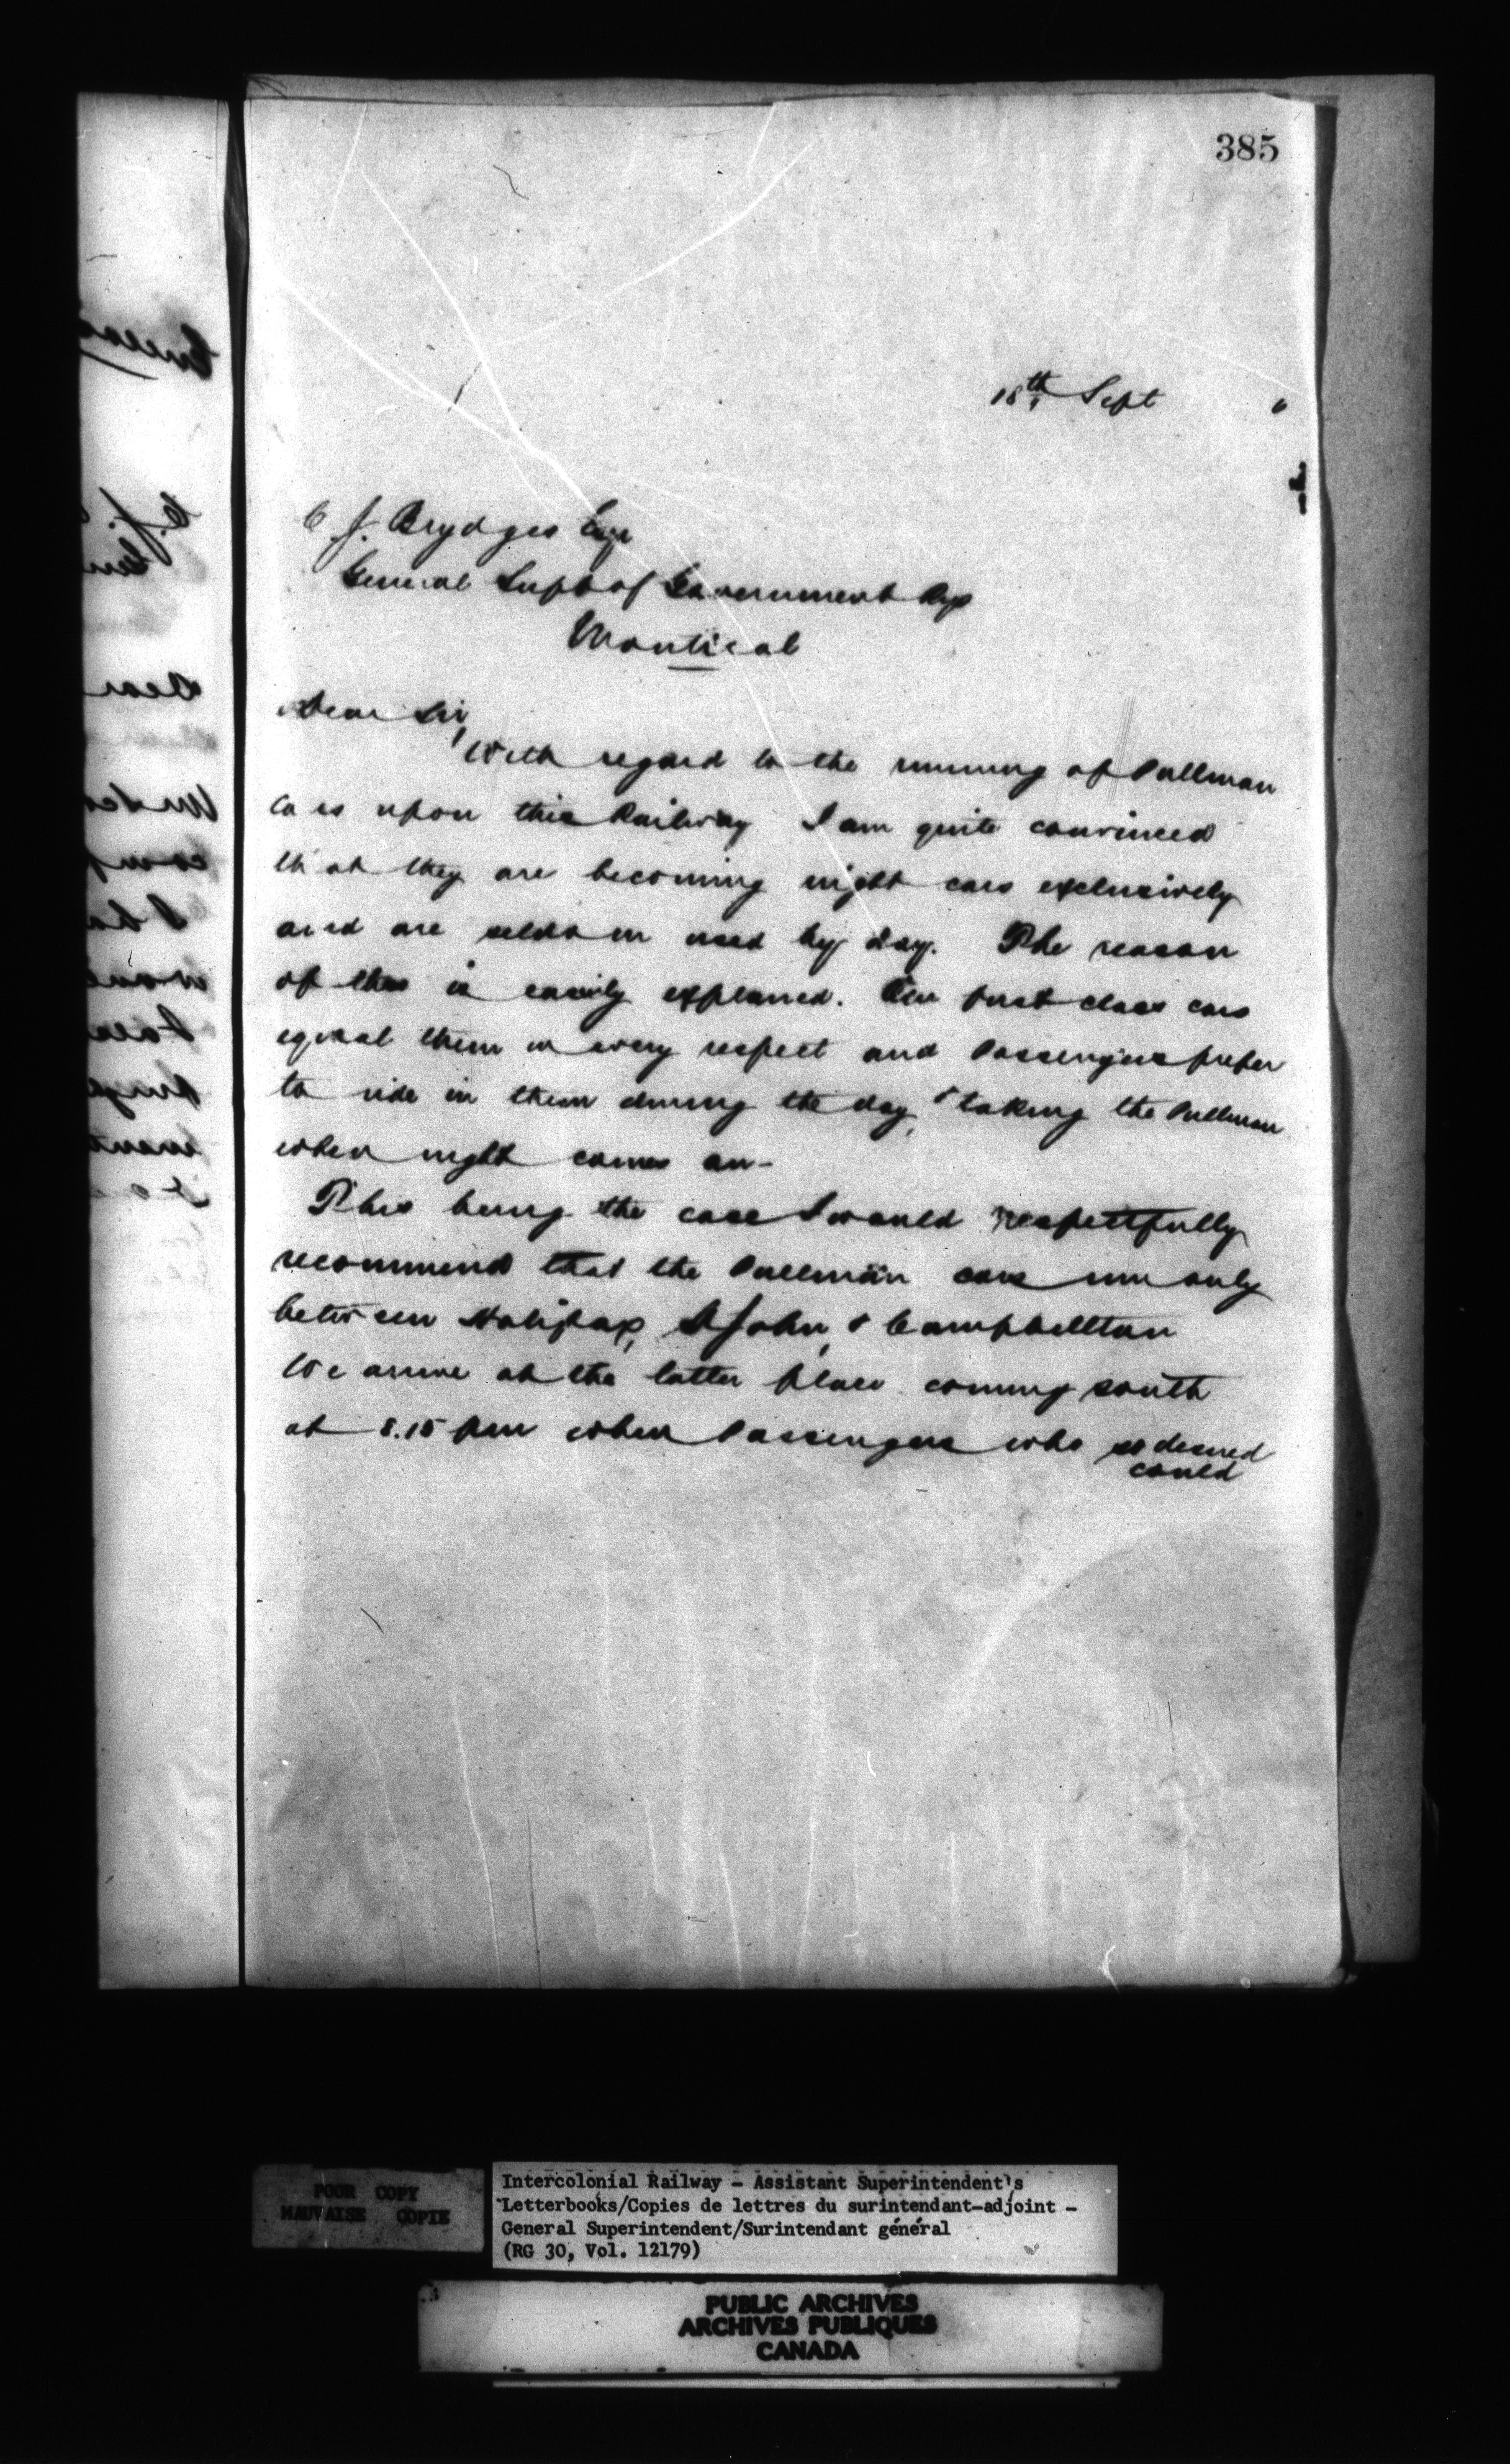 385
18th Sept
C. J. Brydges Esqr
General Supt of Government Rys
Montreal
Dear Sir,
With regard to the running of Pullman
cars upon this Railway I am quite convinced
that they are becoming night cars exclusively
and are seldom used by day. The reason
of this is easily explained. Our first class cars
equal them in every respect and Passengers prefer
to ride in them during the day, taking the Pullman
when night comes on -
This being the case I would respectfully
recommend that the Pullman cars run only
between Halifax, St John, & Campbellton
We arrive at the latter place coming south
at 8.15 pm when Passengers who so desired
could
POOR COPY
MAUVAISE COPIE
Intercolonial Railway - Assistant Superintendent's
Letterbooks/Copies de lettres du surintendant-adjoint -
General Superintendent/Surintendant général
(RG 30, Vol. 12179)
PUBLIC ARCHIVES
ARCHIVES PUBLIQUES
CANADA